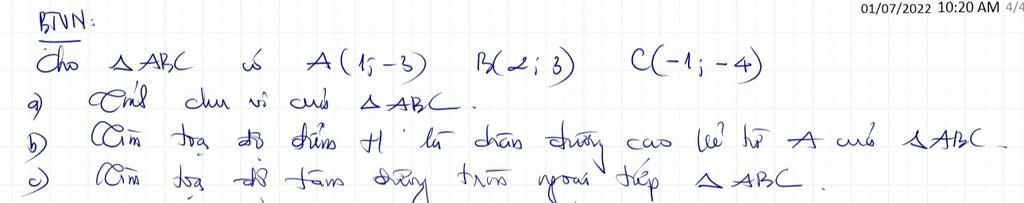 01/07/2022 10:20 AM 4/4
BTVN:
Cho △ABC có A(1; -3) B(2; 3) C(-1; -4)
a) Tính chu vi của △ABC.
b) Tìm toạ độ điểm H là chân đường cao kẻ từ A của △ABC.
c) Tìm toạ độ tâm đường tròn ngoại tiếp △ABC.